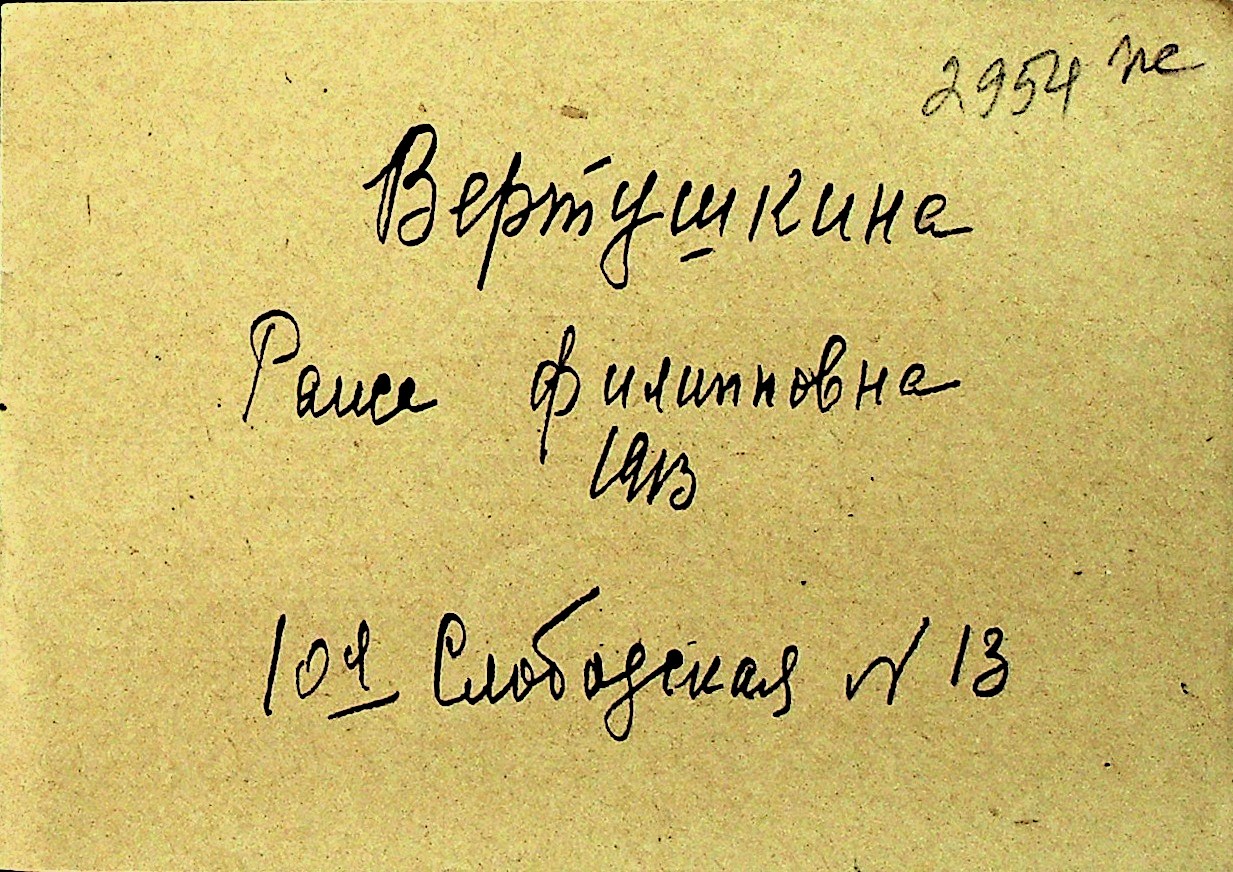 2954 пс
Вертушкина
Раиса Филипповна
1913
10я Слободская N 13